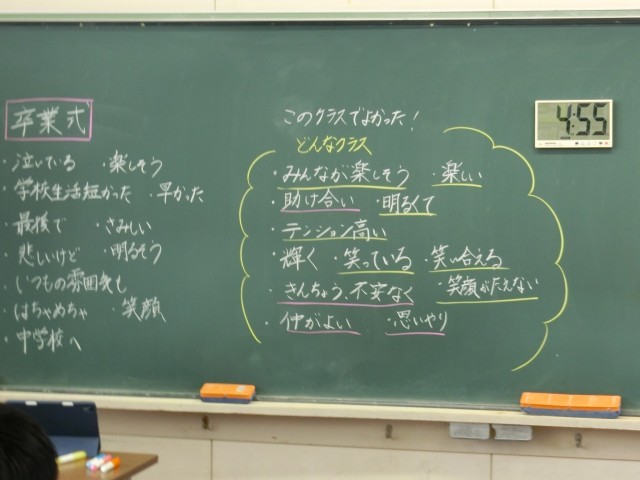 卒業式
・泣いている ・楽しそう
・学校生活短かった ・早かった
・最後で ・さみしい
・悲しいけど ・明るそう
・いつもの雰囲気も
・はちゃめちゃ ・笑顔
・中学校へ
このクラスでよかった!
どんなクラス
・みんなが楽しそう ・楽しい
・助け合い ・明るくて
・テンション高い
・輝く ・笑っている ・笑い合える
・きんちょう、不安なく ・笑顔がたえない
・仲がよい ・思いやり
4:55